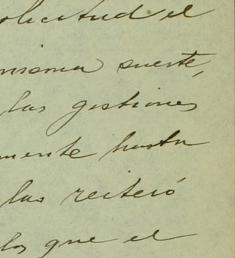 olicitud el
misma suerte,
las gestiones
mente hasta
las reiteró
los que el